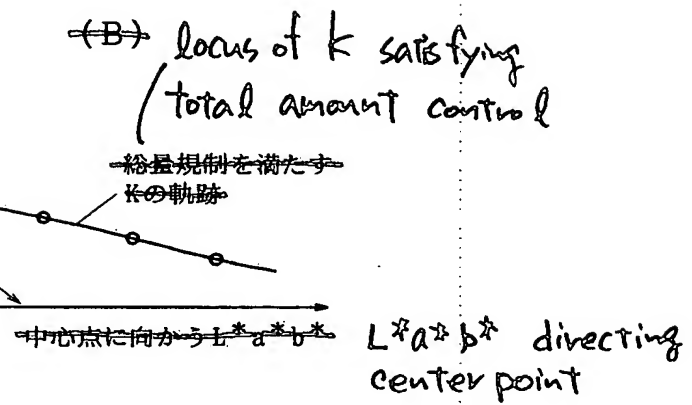 (B)
locus of k satisfying
total amount control
総量規制を満たす
Kの軌跡
中心点に向かうL*a*b*
L*a*b* directing
center point